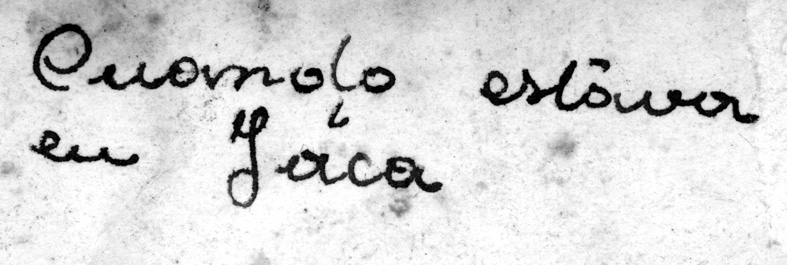 Cuando estava
en Jáca